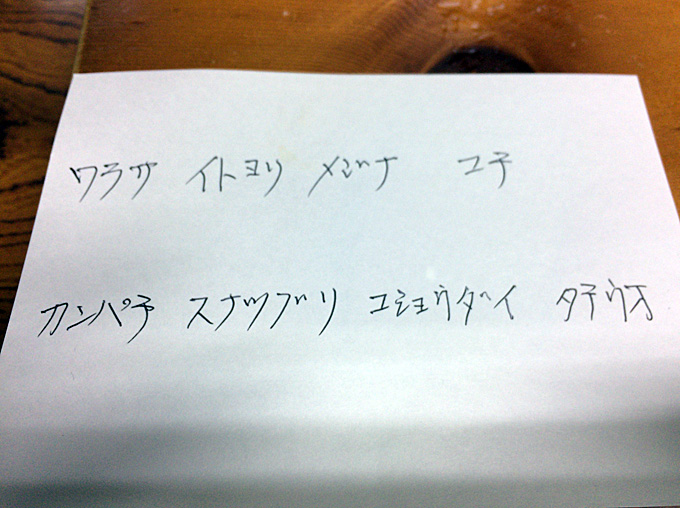 ワラサ イトヨリ メジナ コチ
カンパチ スナツブリ コショウダイ タチウオ